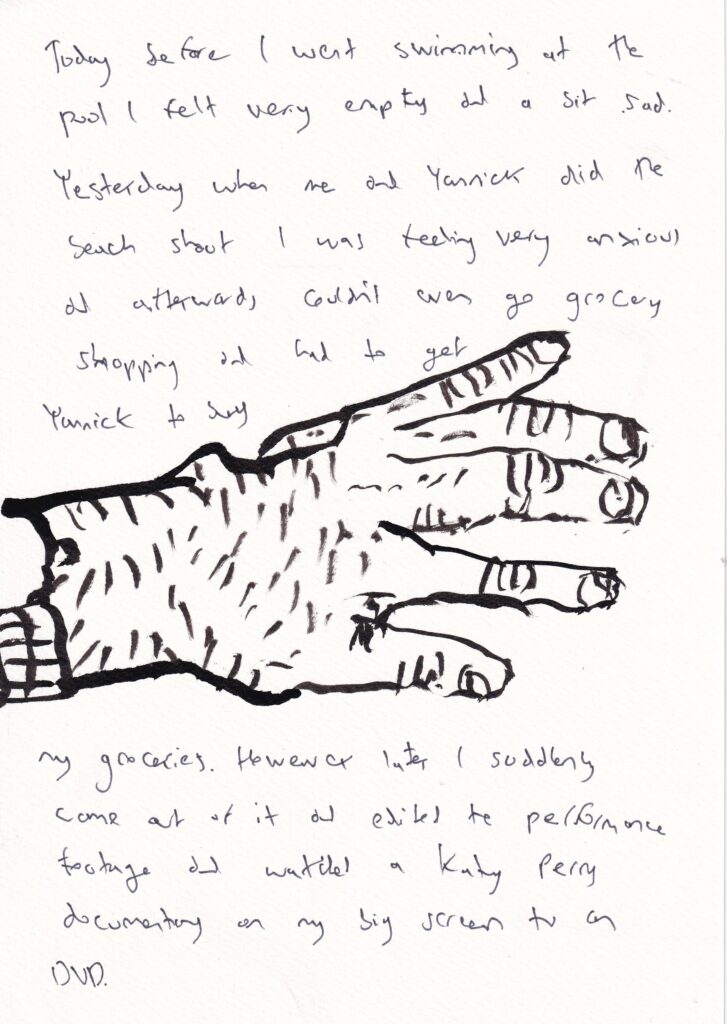 Today before I went swimming at the
pool I felt very empty and a bit sad.
Yesterday when me and Yannick did the
beach shoot I was feeling very anxious
and afterwards couldn't even go grocery
shopping and had to get
Yannick to buy
my groceries. However later I suddenly
came out of it and edited the performance
footage and watched a Katy Perry
documentary on my big screen tv on
DVD.